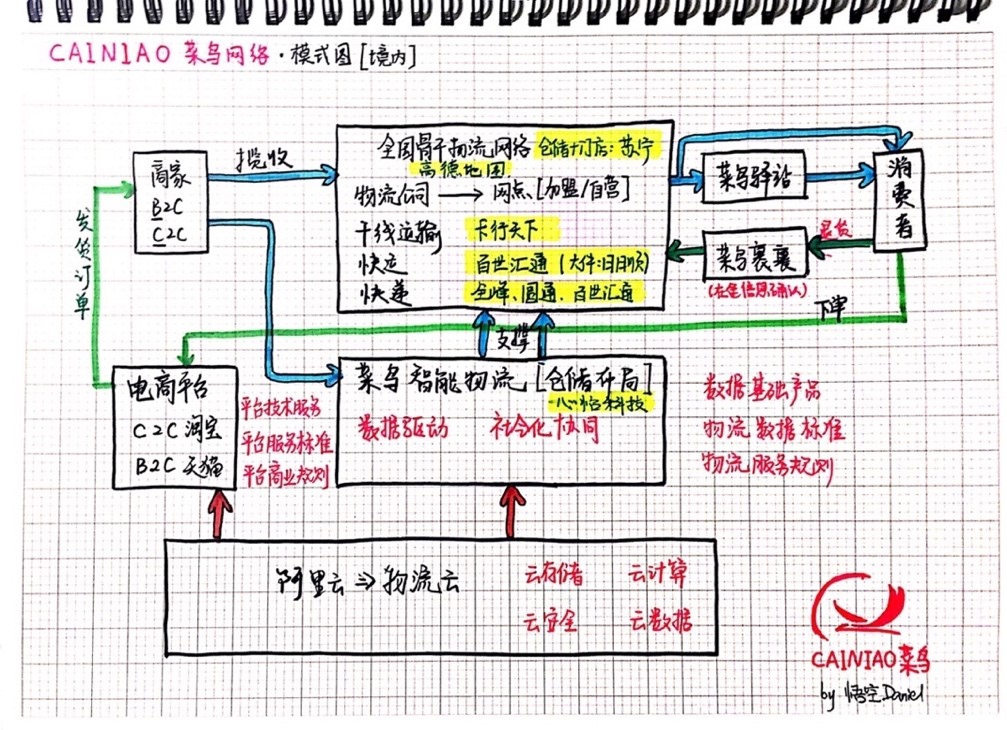 CAINIAO 菜鸟网络·模式图[境内]
商家
B2C
C2C
揽收
全国骨干物流网络 仓储+门店:苏宁
高德地图
物流公司 → 网点[加盟/自营]
干线运输 卡行天下
快运 百世汇通(大件:日日顺)
快递 全峰、圆通、百世汇通
菜鸟驿站
消费者
退货
菜鸟裹裹
发货订单
下单
支撑
电商平台
C2C 淘宝
B2C 天猫
平台技术服务
平台服务标准
平台商业规则
菜鸟智能物流[仓储布局]
心怡科技
数据驱动 社会化协同
数据基础产品
物流数据标准
物流服务规则
阿里云⇒物流云
云存储 云计算
云安全 云数据
CAINIAO菜鸟
by 悟空.Daniel